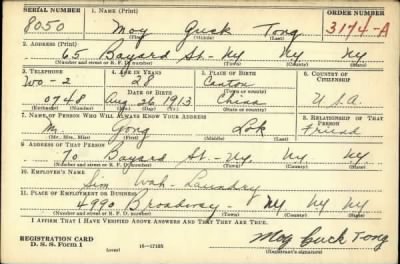 SERIAL NUMBER 1. NAME (Print) ORDER NUMBER
8050 Moy Guck Tong 3174-A
(First) (Middle) (Last)
2. ADDRESS (Print)
65 Bayard St. - Ny Ny Ny
(Number and street or R. F. D. number) (Town) (County) (State)
3. TELEPHONE 4. AGE IN YEARS 5. PLACE OF BIRTH 6. COUNTRY OF CITIZENSHIP
Wo-2 28 Canton
DATE OF BIRTH (Town or county)
0748 Aug 26 1913 China U.S.A.
(Exchange) (Number) (Mo.) (Day) (Yr.) (State or country)
7. NAME OF PERSON WHO WILL ALWAYS KNOW YOUR ADDRESS 8. RELATIONSHIP OF THAT PERSON
M. Gong Lok Friend
(Mr., Mrs., Miss) (First) (Middle) (Last)
9. ADDRESS OF THAT PERSON
70 Bayard St. - Ny. Ny. Ny
(Number and street or R. F. D. number) (Town) (County) (State)
10. EMPLOYER'S NAME
Sim Wah - Laundry
11. PLACE OF EMPLOYMENT OR BUSINESS
4990 Broadway - Ny Ny Ny
(Number and street or R. F. D. number) (Town) (County) (State)
I AFFIRM THAT I HAVE VERIFIED ABOVE ANSWERS AND THAT THEY ARE TRUE.
REGISTRATION CARD
D. S. S. Form 1 (over) 16-17105 Moy Guck Tong
(Registrant's signature)